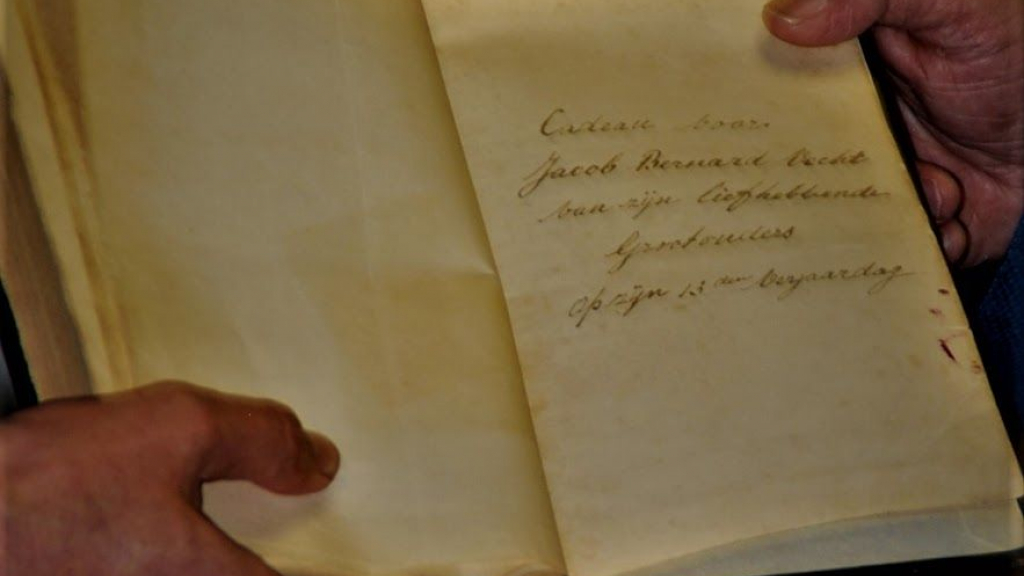 Cadeau voor
Jacob Bernard Vecht
van zijn liefhebbende
Grootouders
op zijn 13 den Verjaardag